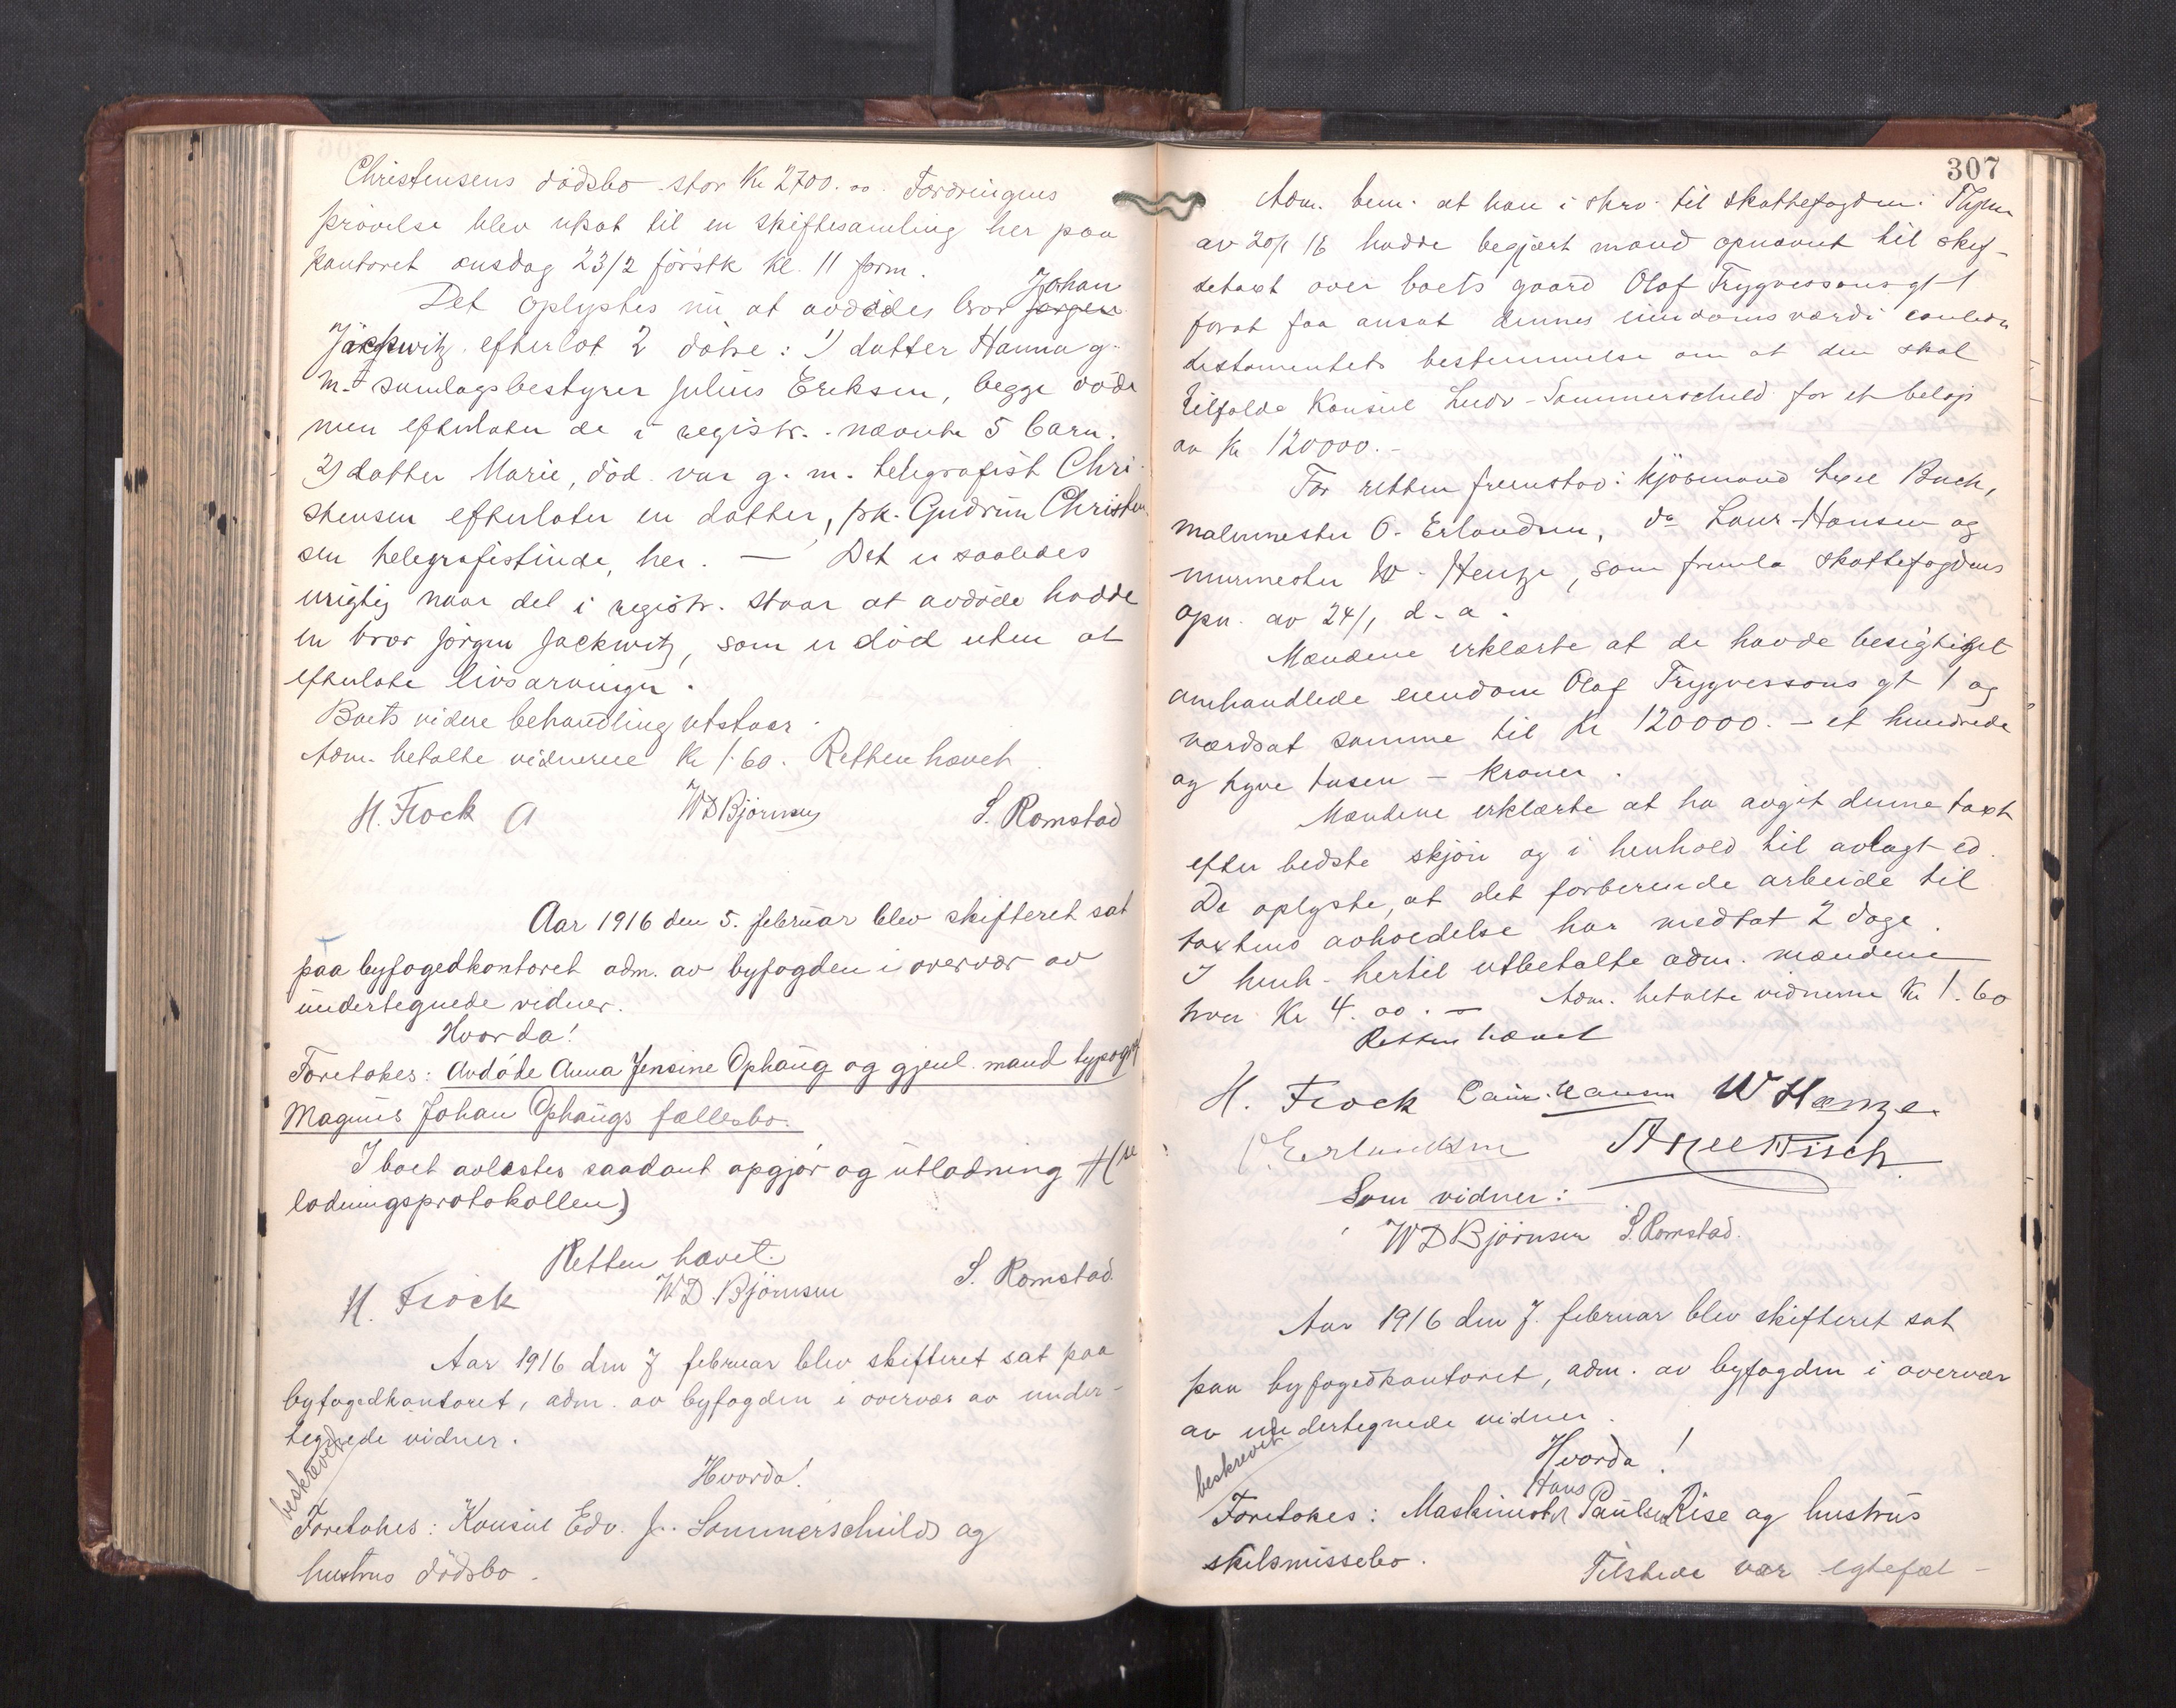 Christensens dödsbo stor Kr 2700.00. Fordringens
prövelse blev utsat til en skiftesamling her paa
kontoret onsdag 23/2 förstk kl. 11 form.
Det oplystes nu at avdödes bror Jørgen Johan
Jackwitz efterlot 2 dötre: 1) datter Hanna g.
m. samlagsbestyrer Julius Eriksen, begge döde
men efterlater de i registr. nævnte 5 barn.
2) datter Marie, död. var g. m. telegrafist Chri-
stensen efterlater en datter, frk. Gudrun Christen-
sen telegrafistinde, her. — Det er saaledes
urigtig naar det i registr. staar at avdöde hadde
en bror Jörgen Jackwitz, som er död uten at
efterlate livsarvinger.
Boets videre behandling utstaar.
Adm. betalte vidnerne Kr 1.60. Retten hævet.
H. Frock WDBjörnsen S. Romstad
Aar 1916 den 5. februar blev skifteret sat
paa byfogedkontoret adm. av byfogden i overvær av
undertegnede vidner.
Hvorda!
Foretokes: Avdöde Anna Jensine Ophaug og gjenl. mand typogr
Magnus Johan Ophaugs fællesbo.
I boet avlæstes saadant opgjør og utlodning (se
lodningsprotokollen)
Retten hævet.
H. Frock WD Björnsen S. Romstad.
Aar 1916 den 7 februar blev skifteret sat paa
byfogedkontoret, adm. av byfogden i overvær av under-
tegnede vidner.
beskrevet
Hvorda!
Foretokes: Konsul Edv. J. Sommerschilds og
hustrus dödsbo.
307
Adm. bem. at han i skrv. til skattefogden i Thjem
av 20/1 16 hadde begjært mænd opnævnt til skif-
tetaxt over boets gaard Olaf Trygvessons gt 1
forat faa ansat dennes eiendoms værdi
testamentets bestemmelse om at den skal
tilfalde Konsul Ludv. Sommerschild for et beløp
av Kr 120000.-
For retten fremstod: kjöbmand Buch,
malermester O. Erlandsen, do Laur. Hansen og
murmester W. Henze, som fremla skattefogdens
opn. av 24/1 d. a.
Mændene erklærte at de havde besigtiget
omhandlede eiendom Olaf Trygvessons gt 1 og
værdsat samme til Kr 120000.- et hundrede
og tyve tusen - kroner.
Mændene erklærte at ha avgit denne taxt
efter bedste skjön og i henhold til avlagt ed.
De oplyste, at det forberedende arbeide til
taxtens avholdelse har medtat 2 dage.
I henh. hertil utbetalte adm. mændene
hver Kr 4.00.- Adm. betalte vidnerne Kr 1.60
Retten hævet
H. Frock Laur. Hansen W Henze
O. Erlandsen
Som vidner:
WDBjörnsen S. Romstad.
Aar 1916 den 7. februar blev skifteret sat
paa byfogedkontoret, adm. av byfogden i overvær
av undertegnede vidner.
beskrevet
Hvorda!
Foretokes: Maskinist Hans Paulsen Rise og hustrus
skilsmissebo. Tilstede var egtefæl-